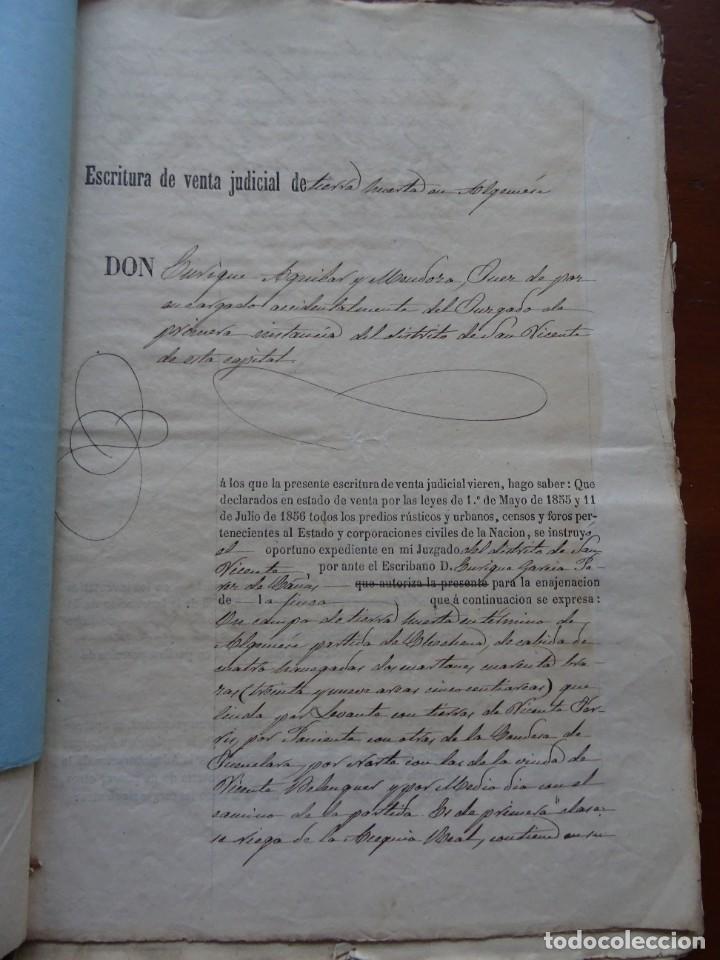 Escritura de venta judicial de tierra huerta en Algemesí
DON Enrique Aguilar y Mendoza, Juez de paz
encargado accidentalmente del Juzgado de
primera instancia del distrito de San Vicente
de esta capital
á los que la presente escritura de venta judicial vieren, hago saber: Que
declarados en estado de venta por las leyes de 1.º de Mayo de 1855 y 11
de Julio de 1856 todos los predios rústicos y urbanos, censos y foros per-
tenecientes al Estado y corporaciones civiles de la Nacion, se instruyó
el oportuno expediente en mi Juzgado del distrito de San
Vicente por ante el Escribano D. Enrique Garcia
de que autoriza la presente para la enajenacion
de la finca que á continuacion se expresa:
Un campo de tierra huerta en término de
Algemesí partida de de cabida de
cuatro hanegadas dos cuartones cuarenta bra-
zas (treinta y nueve areas cinco centiareas) que
linda por Levante con tierras de Vicente Fer-
ris, por Poniente con otras de la de
por Norte con las de la viuda de
Vicente Belenguer y por Medio dia con el
camino de la partida Es de primera clase
se riega de la Acequia Real, contiene en su
todocoleccion
todocoleccion.net